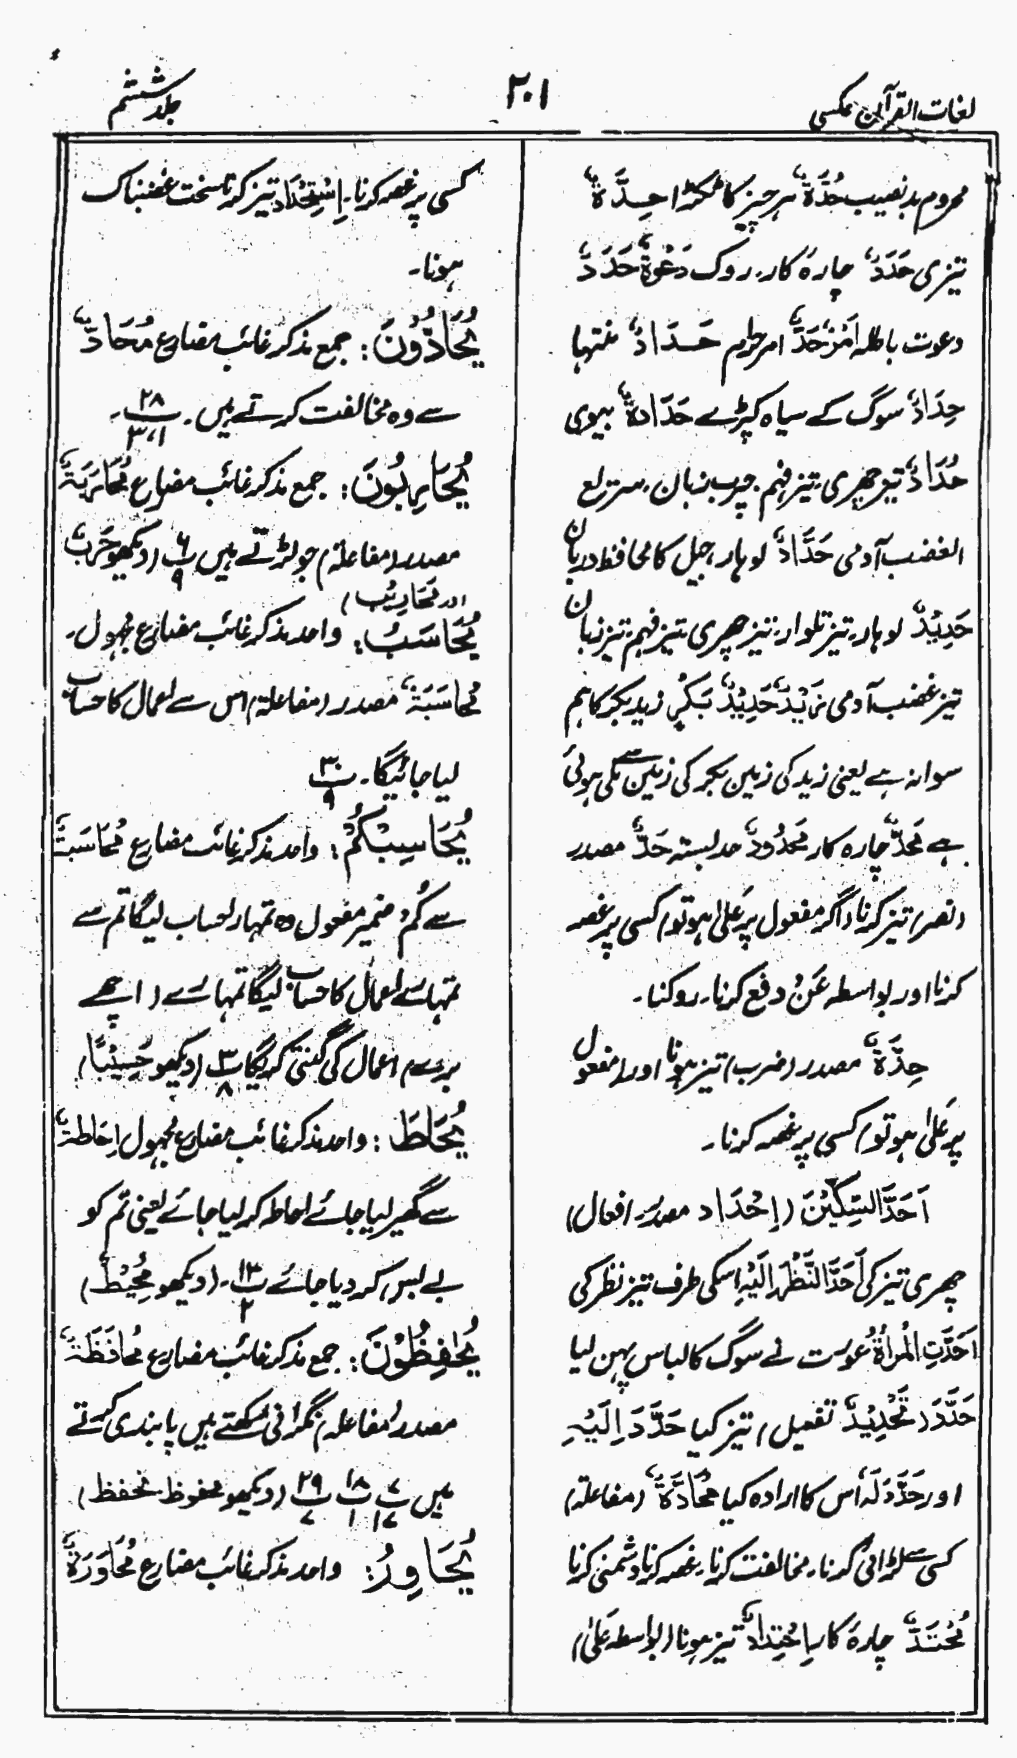 لغات القرآن عکسی
۲۰۱
جلد ششم
محروم بدنصیب حُدَّۃٌ ہر چیز کا ٹکڑا حِدَّۃٌ
تیزی حَدَدٌ چارہ کار۔ روک دَعْوَۃٌ حَدَدٌ
دعوت باطلہ اَمْرٌ حَدَدٌ امر حرام حَدَادٌ منتہا
حِدَادٌ سوگ کے سیاہ کپڑے حَدَادَۃٌ بیوی
حُدَادٌ تیز چھری، تیز فہم، چرب زبان، سریع
الغضب آدمی حَدَّادٌ لوہار، جیل کا محافظ دربان
حَدِیْدٌ لوہار، تیز تلوار، تیز چھری، تیز فہم، تیز زبان
تیز غضب آدمی زَیْدٌ حَدِیْدُ بَکْرٍ زید بکر کا ہم
سوانہ ہے یعنی زید کی زمین بکر کی زمین سے لگی ہوئی
ہے مَحَدٌّ چارہ کار مَحْدُوْدٌ حد بستہ حَدٌّ مصدر
(نصر) تیز کرنا (اگر مفعول پر عَلیٰ ہو تو) کسی پر غصہ
کرنا اور بواسطہ عَنْ دفع کرنا۔ روکنا۔
حِدَّۃٌ مصدر (ضرب) تیز ہونا اور (مفعول
پر عَلیٰ ہو تو) کسی پر غصہ کرنا۔
اَحَدَّ السِّکِّیْنَ (اِحْدَاد مصدر۔ افعال)
چھری تیز کی اَحَدَّ النَّظْرَ اِلَیْہِ اسکی طرف تیز نظر کی
اَحَدَّتِ الْمَرْاَۃُ عورت نے سوگ کا لباس پہن لیا
حَدَّدَ (تَحْدِیْدٌ تفعیل) تیز کیا حَدَّدَ اِلَیْہِ
اور حَدَّدَ لَہٗ اس کا ارادہ کیا مُحَادَّۃٌ (مفاعلۃ)
کسی سے لڑائی کرنا، مخالفت کرنا، غصہ کرنا، دشمنی کرنا
مُحْتَدٌّ چارہ کار اِحْتِدَادٌ تیز ہونا (بواسطہ عَلیٰ)
کسی پر غصہ کرنا۔ اِسْتِحْدَاد تیز کرنا سخت غضبناک
ہونا۔
یُحَادُّوْنَ: جمع مذکر غائب مضارع مُحَادَّۃٌ
سے وہ مخالفت کرتے ہیں۔ پ ۲۸ ۱، ۳۔
یُحَارِبُوْنَ: جمع مذکر غائب مضارع مُحَارَبَۃٌ
مصدر (مفاعلۃ) جو لڑتے ہیں پ ۶ ۹ (دیکھو حَرْبٌ
اور مَحَارِیْب)
یُحَاسَبُ: واحد مذکر غائب مضارع مجہول۔
مُحَاسَبَۃٌ مصدر (مفاعلۃ) اس سے اعمال کا حساب
لیا جائیگا۔ پ ۳۰ ۹
یُحَاسِبْکُمْ: واحد مذکر غائب مضارع مُحَاسَبَۃٌ
سے کُمْ ضمیر مفعول وہ تمہارا حساب لیگا تم سے
تمہارے اعمال کا حساب لیگا تمہارے (اچھے
برے) اعمال کی گنتی کریگا پ ۳ ۸ (دیکھو حَسِیْبًا)
یُحَاطَ: واحد مذکر غائب مضارع مجہول اِحَاطَۃٌ
سے گھیر لیا جائے احاطہ کر لیا جائے یعنی تم کو
بے بس کر دیا جائے پ ۱۳ ۲۔ (دیکھو مُحِیْطٌ)
یُحَافِظُوْنَ: جمع مذکر غائب مضارع مُحَافَظَۃٌ
مصدر (مفاعلۃ) نگرانی رکھتے ہیں پابندی کرتے
ہیں پ ۷ ۱۷ پ ۱۸ ۱ پ ۲۹ ۷ (دیکھو محفوظ تحفظ)
یُحَاوِرُ: واحد مذکر غائب مضارع مُحَاوَرَۃٌ